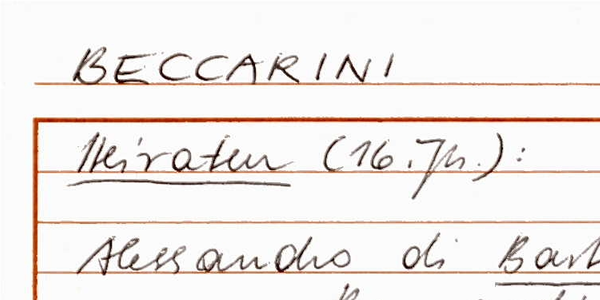 BECCARINI
Heiraten (16. Jh.):
Alessandro di